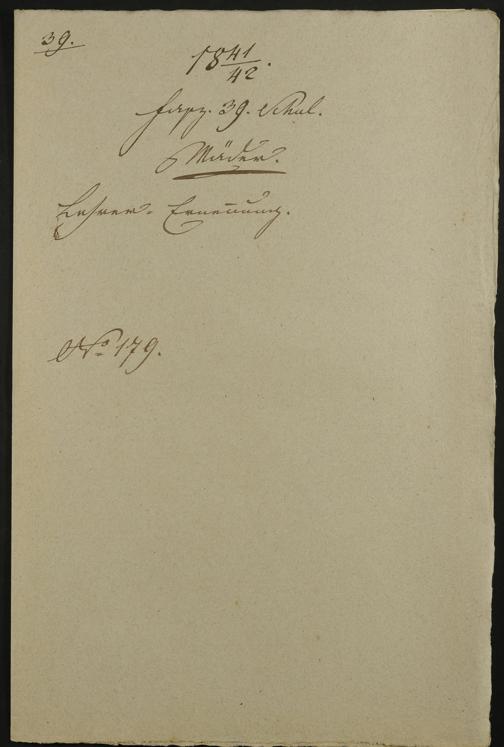 39.
18 41/42.
Fasz. 39. Schul.
Mäder.
Lehrer-Ernennung.
No. 179.